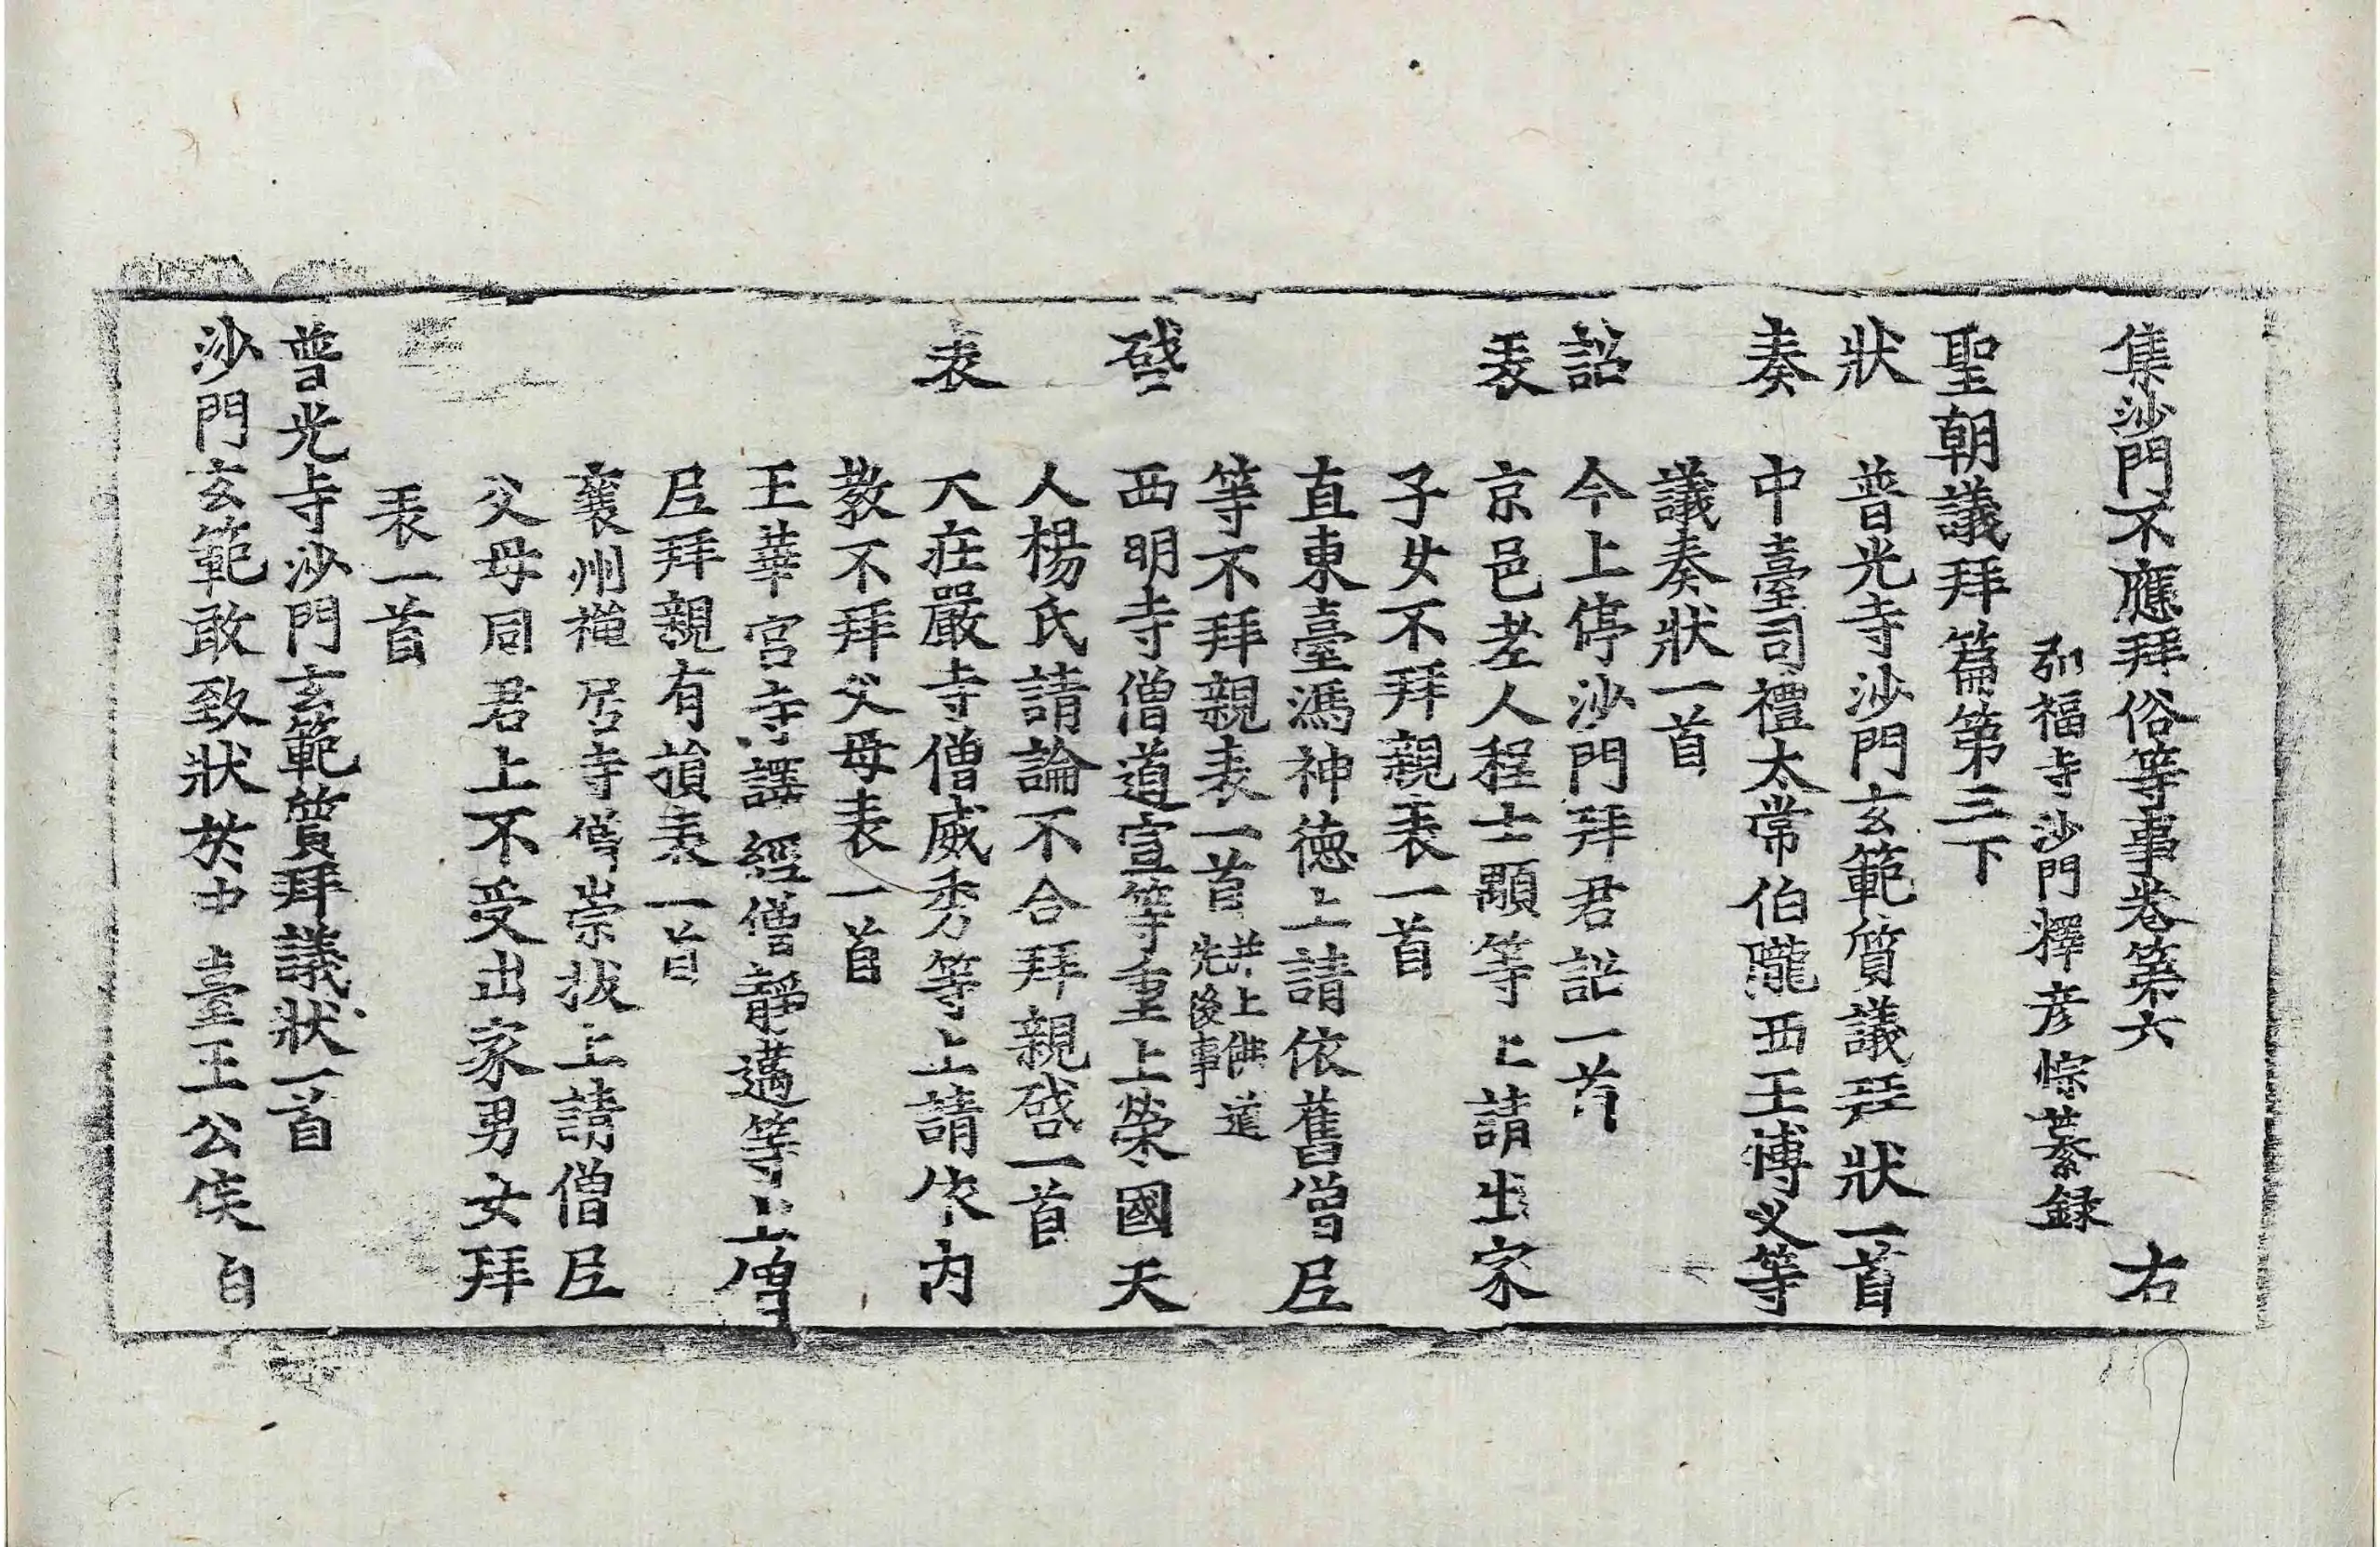 集沙門不應拜俗等事卷第六 右
弘福寺沙門釋彦悰纂録
聖朝議拜篇第三下
狀 普光寺沙門玄範質議拜狀一首
奏 中臺司禮太常伯隴西王博义等
議奏狀一首
詔 今上停沙門拜君詔一首
表 京邑老人程士顒等上請出家
子女不拜親表一首
直東臺馮神德上請依舊僧尼
等不拜親表一首 并上佛道先後事
啓 西明寺僧道宣等重上榮國夫
人楊氏請論不合拜親啓一首
表 大莊嚴寺僧威秀等上請依內
教不拜父母表一首
玉華宮寺譯經僧靜邁等上僧
尼拜親有損表一首
襄州禪居寺僧崇拔上請僧尼
父母同君上不受出家男女拜
表一首
普光寺沙門玄範質拜議狀一首
沙門玄範敢致狀於中臺王公侯自